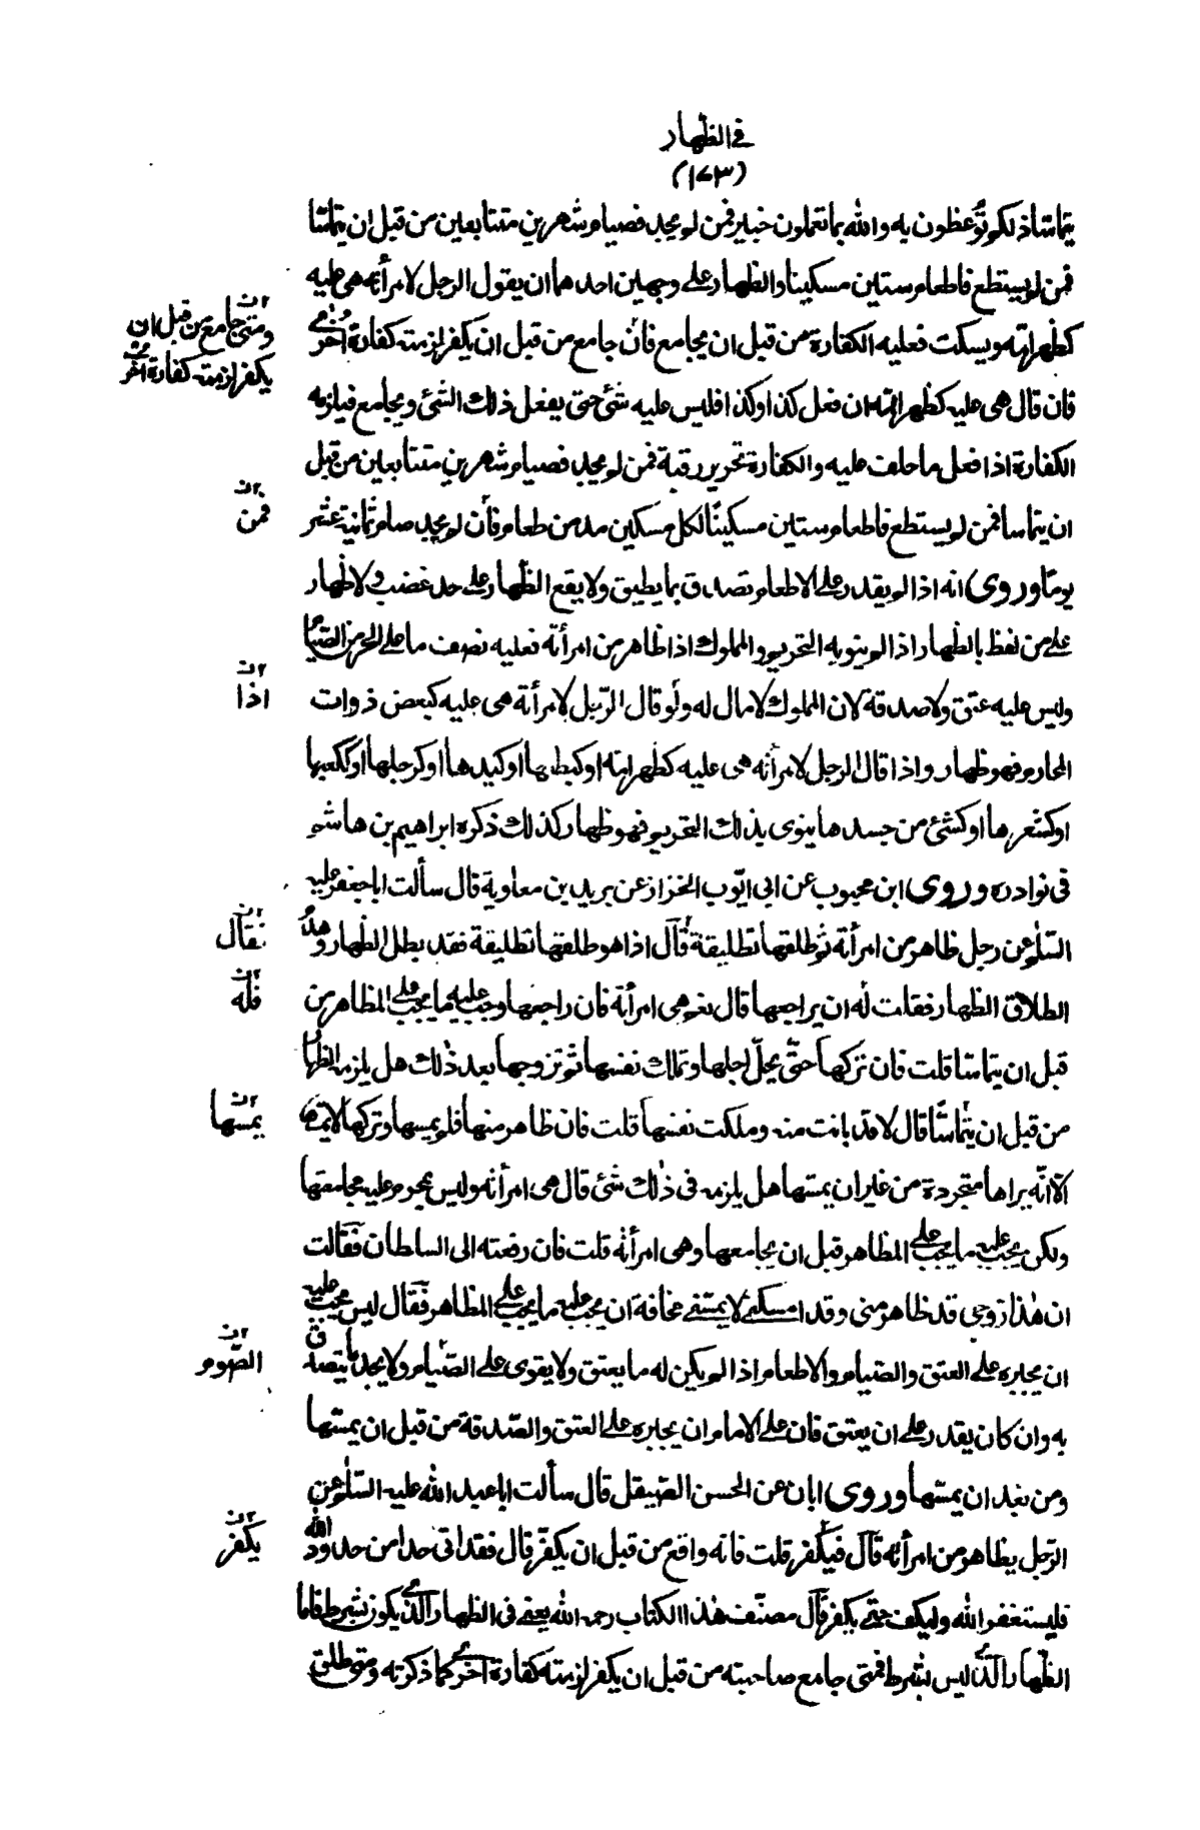 في الظهار
(١٧٣)
يتماسا ذلكم توعظون به والله بما تعملون خبير فمن لم يجد فصيام شهرين متتابعين من قبل ان يتماسّا
فمن لم يستطع فاطعام ستين مسكينا والظهار على وجهين احدهما ان يقول الرجل لامرأته هي عليه
كظهر امّه ويسكت فعليه الكفارة من قبل ان يجامع فان جامع من قبل ان يكفر لزمته كفارة اخرى
ومتى جامع من قبل ان
يكفر لزمته كفارة اخرى
فان قال هي عليه كظهر امّه ان فعل كذا وكذا فليس عليه شئ حتى يفعل ذلك الشئ ويجامع فيلزمه
الكفارة اذا فعل ما حلف عليه والكفارة تحرير رقبة فمن لم يجد فصيام شهرين متتابعين من قبل
ان يتماسا فمن لم يستطع فاطعام ستين مسكينًا لكل مسكين مد من طعام فان لم يجد صام ثمانية عشر
فمن
يومًا وروى انه اذا لم يقدر على الاطعام تصدق بما يطيق ولا يقع الظّهار على حد غضب ولا ظهار
على من لفظ بالظهار اذا لم ينو به التحريم والمملوك اذا ظاهر من امرأته فعليه نصف ما على الحر من الصّيام
وليس عليه عتق ولا صدقة لان المملوك لا مال له ولو قال الرّجل لامرأته هي عليه كبعض ذوات
اذا
المحارم فهو ظهار واذا قال الرجل لامرأته هي عليه كظهر امّه او كبطنها او كيدها او كرجلها او ككعبها
او كشعرها او كشئ من جسدها ينوى بذلك التحريم فهو ظهار كذلك ذكره ابراهيم بن هاشم
فى نوادره وروى ابن محبوب عن ابى ايّوب الخزاز عن بريد بن معاوية قال سألت ابا جعفر عليه
السّلام عن رجل ظاهر من امرأته ثم طلقها تطليقة قال اذا هو طلقها تطليقة فقد بطل الظهار وهدم
فقال
الطلاق الظهار فقلت له ان يراجعها قال نعم هي امرأته فان راجعها وجب عليه ما يجب على المظاهر من
فله
قبل ان يتماسّا قلت فان تركها حتّى يحلّ اجلها وتملك نفسها ثم تزوجها بعد ذلك هل يلزمه الظهار
من قبل ان يتماسّا قال لا قد بانت منه وملكت نفسها قلت فان ظاهر منها فلم يمسها وتركها لا يمسّها
يمسّها
الّا انّه يراها متجردة من غير ان يمسّها هل يلزمه فى ذلك شئ قال هى امرأته وليس بمحرم عليه مجامعتها
ولكن يجب عليه ما يجب على المظاهر قبل ان يجامعها وهى امرأته قلت فان رفعته الى السلطان فقالت
ان هذا زوجى قد ظاهر منى وقد امسكنى لا يمسّنى مخافة ان يجب عليه ما يجب على المظاهر فقال ليس يجب عليه
ان يجبره على العتق والصّيام والاطعام اذا لم يكن له ما يعتق ولا يقوى على الصّيام ولا يجد ما يتصدق
الصّوم
به وان كان يقدر على ان يعتق فان على الامام ان يجبره على العتق والصّدقة من قبل ان يمسّها
ومن بعد ان يمسّها وروى ابان عن الحسن الصّيقل قال سألت ابا عبد الله عليه السّلام عن
الرّجل يظاهر من امرأته قال فيكفر قلت فانه واقع من قبل ان يكفّر قال فقد اتى حدا من حدود الله
يكفر
فليستغفر الله وليكف حتى يكفر قال مصنّف هذا الكتاب رحمه الله يعنى فى الظهار الذى يكون بشرط فاما
الظّهار الذى ليس بشرط فمتى جامع صاحبته من قبل ان يكفر لزمته كفارة اخرى كما ذكرته ومتى طلق